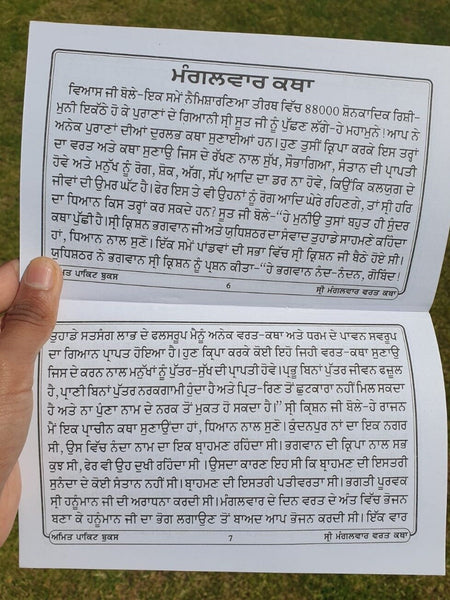 ਮੰਗਲਵਾਰ ਕਥਾ
ਵਿਆਸ ਜੀ ਬੋਲੇ-ਇਕ ਸਮੇਂ ਨੈਮਿਸ਼ਾਰਣਿਆ ਤੀਰਥ ਵਿੱਚ 88000 ਸ਼ੋਨਕਾਦਿਕ ਰਿਸ਼ੀ-
ਮੁਨੀ ਇਕੱਠੇ ਹੋ ਕੇ ਪੁਰਾਣਾਂ ਦੇ ਗਿਆਨੀ ਸ੍ਰੀ ਸੂਤ ਜੀ ਨੂੰ ਪੁੱਛਣ ਲੱਗੇ-ਹੇ ਮਹਾਮੁਨੇ! ਆਪ ਨੇ
ਅਨੇਕ ਪੁਰਾਣਾਂ ਦੀਆਂ ਦੁਰਲਭ ਕਥਾ ਸੁਣਾਈਆਂ ਹਨ। ਹੁਣ ਤੁਸੀਂ ਕ੍ਰਿਪਾ ਕਰਕੇ ਇਸ ਤਰ੍ਹਾਂ
ਦਾ ਵਰਤ ਅਤੇ ਕਥਾ ਸੁਣਾਉ ਜਿਸ ਦੇ ਰੱਖਣ ਨਾਲ ਸੁੱਖ, ਸੋਭਾਗਿਆ, ਸੰਤਾਨ ਦੀ ਪ੍ਰਾਪਤੀ
ਹੋਵੇ ਅਤੇ ਮਨੁੱਖ ਨੂੰ ਰੋਗ, ਸ਼ੋਕ, ਅੱਗ, ਸੱਪ ਆਦਿ ਦਾ ਡਰ ਨਾ ਹੋਵੇ, ਕਿਉਂਕਿ ਕਲਯੁਗ ਦੇ
ਜੀਵਾਂ ਦੀ ਉਮਰ ਘੱਟ ਹੈ। ਫੇਰ ਇਸ ਤੇ ਵੀ ਉਹਨਾਂ ਨੂੰ ਰੋਗ ਆਦਿ ਘੇਰੇ ਰਹਿਣਗੇ, ਤਾਂ ਸ੍ਰੀ ਹਰਿ
ਦਾ ਧਿਆਨ ਕਿਸ ਤਰ੍ਹਾਂ ਕਰ ਸਕਦੇ ਹਨ? ਸੂਤ ਜੀ ਬੋਲੇ-"ਹੇ ਮੁਨੀਉ ਤੁਸਾਂ ਬਹੁਤ ਹੀ ਸੁੰਦਰ
ਕਥਾ ਪੁੱਛੀ ਹੈ। ਸ੍ਰੀ ਕ੍ਰਿਸ਼ਨ ਭਗਵਾਨ ਜੀ ਅਤੇ ਯੁਧਿਸ਼ਠਰ ਦਾ ਸੰਵਾਦ ਤੁਹਾਡੇ ਸਾਹਮਣੇ ਕਹਿੰਦਾ
ਹਾਂ, ਧਿਆਨ ਨਾਲ ਸੁਣੋ। ਇੱਕ ਸਮੇਂ ਪਾਂਡਵਾਂ ਦੀ ਸਭਾ ਵਿੱਚ ਸ੍ਰੀ ਕ੍ਰਿਸ਼ਨ ਜੀ ਬੈਠੇ ਹੋਏ ਸੀ।
ਯੁਧਿਸ਼ਠਰ ਨੇ ਭਗਵਾਨ ਸ੍ਰੀ ਕ੍ਰਿਸ਼ਨ ਨੂੰ ਪ੍ਰਸ਼ਨ ਕੀਤਾ-"ਹੇ ਭਗਵਾਨ ਨੰਦ-ਨੰਦਨ, ਗੋਬਿੰਦ!
ਅਮਿਤ ਪਾਕਿਟ ਬੁਕਸ 6 ਸ੍ਰੀ ਮੰਗਲਵਾਰ ਵਰਤ ਕਥਾ
ਤੁਹਾਡੇ ਸਤਸੰਗ ਲਾਭ ਦੇ ਫਲਸਰੂਪ ਮੈਨੂੰ ਅਨੇਕ ਵਰਤ-ਕਥਾ ਅਤੇ ਧਰਮ ਦੇ ਪਾਵਨ ਸਵਰੂਪ
ਦਾ ਗਿਆਨ ਪ੍ਰਾਪਤ ਹੋਇਆ ਹੈ। ਹੁਣ ਕ੍ਰਿਪਾ ਕਰਕੇ ਕੋਈ ਇਹੋ ਜਿਹੀ ਵਰਤ-ਕਥਾ ਸੁਣਾਉ
ਜਿਸ ਦੇ ਕਰਨ ਨਾਲ ਮਨੁੱਖਾਂ ਨੂੰ ਪੁੱਤਰ-ਸੁੱਖ ਦੀ ਪ੍ਰਾਪਤੀ ਹੋਵੇ। ਪ੍ਰਭੂ ਬਿਨਾਂ ਪੁੱਤਰ ਜੀਵਨ ਫਜ਼ੂਲ
ਹੈ, ਪ੍ਰਾਣੀ ਬਿਨਾਂ ਪੁੱਤਰ ਨਰਕਗਾਮੀ ਹੁੰਦਾ ਹੈ ਅਤੇ ਪ੍ਰਿਤ-ਰਿਣ ਤੋਂ ਛੁਟਕਾਰਾ ਨਹੀਂ ਮਿਲ ਸਕਦਾ
ਹੈ ਅਤੇ ਨਾ ਪੁੰਨਾ ਨਾਮ ਦੇ ਨਰਕ ਤੋਂ ਮੁਕਤ ਹੋ ਸਕਦਾ ਹੈ।" ਸ੍ਰੀ ਕ੍ਰਿਸ਼ਨ ਜੀ ਬੋਲੇ-ਹੇ ਰਾਜਨ
ਮੈਂ ਇਕ ਪ੍ਰਾਚੀਨ ਕਥਾ ਸੁਣਾਉਂਦਾ ਹਾਂ, ਧਿਆਨ ਨਾਲ ਸੁਣੋ। ਕੁੰਦਨਪੁਰ ਨਾਂ ਦਾ ਇਕ ਨਗਰ
ਸੀ, ਉਸ ਵਿੱਚ ਨੰਦਾ ਨਾਮ ਦਾ ਇਕ ਬ੍ਰਾਹਮਣ ਰਹਿੰਦਾ ਸੀ। ਭਗਵਾਨ ਦੀ ਕ੍ਰਿਪਾ ਨਾਲ ਸਭ
ਕੁਝ ਸੀ, ਫੇਰ ਵੀ ਉਹ ਦੁਖੀ ਰਹਿੰਦਾ ਸੀ। ਉਸਦਾ ਕਾਰਣ ਇਹ ਸੀ ਕਿ ਬ੍ਰਾਹਮਣ ਦੀ ਇਸਤਰੀ
ਸੁਨੰਦਾ ਦੇ ਕੋਈ ਸੰਤਾਨ ਨਹੀਂ ਸੀ। ਬ੍ਰਾਹਮਣ ਦੀ ਇਸਤਰੀ ਪਤੀਵਰਤਾ ਸੀ। ਭਗਤੀ ਪੂਰਵਕ
ਸ੍ਰੀ ਹਨੂੰਮਾਨ ਜੀ ਦੀ ਅਰਾਧਨਾ ਕਰਦੀ ਸੀ। ਮੰਗਲਵਾਰ ਦੇ ਦਿਨ ਵਰਤ ਦੇ ਅੰਤ ਵਿੱਚ ਭੋਜਨ
ਬਣਾ ਕੇ ਹਨੂੰਮਾਨ ਜੀ ਦਾ ਭੋਗ ਲਗਾਉਣ ਤੋਂ ਬਾਅਦ ਆਪ ਭੋਜਨ ਕਰਦੀ ਸੀ। ਇੱਕ ਵਾਰ
ਅਮਿਤ ਪਾਕਿਟ ਬੁਕਸ 7 ਸ੍ਰੀ ਮੰਗਲਵਾਰ ਵਰਤ ਕਥਾ